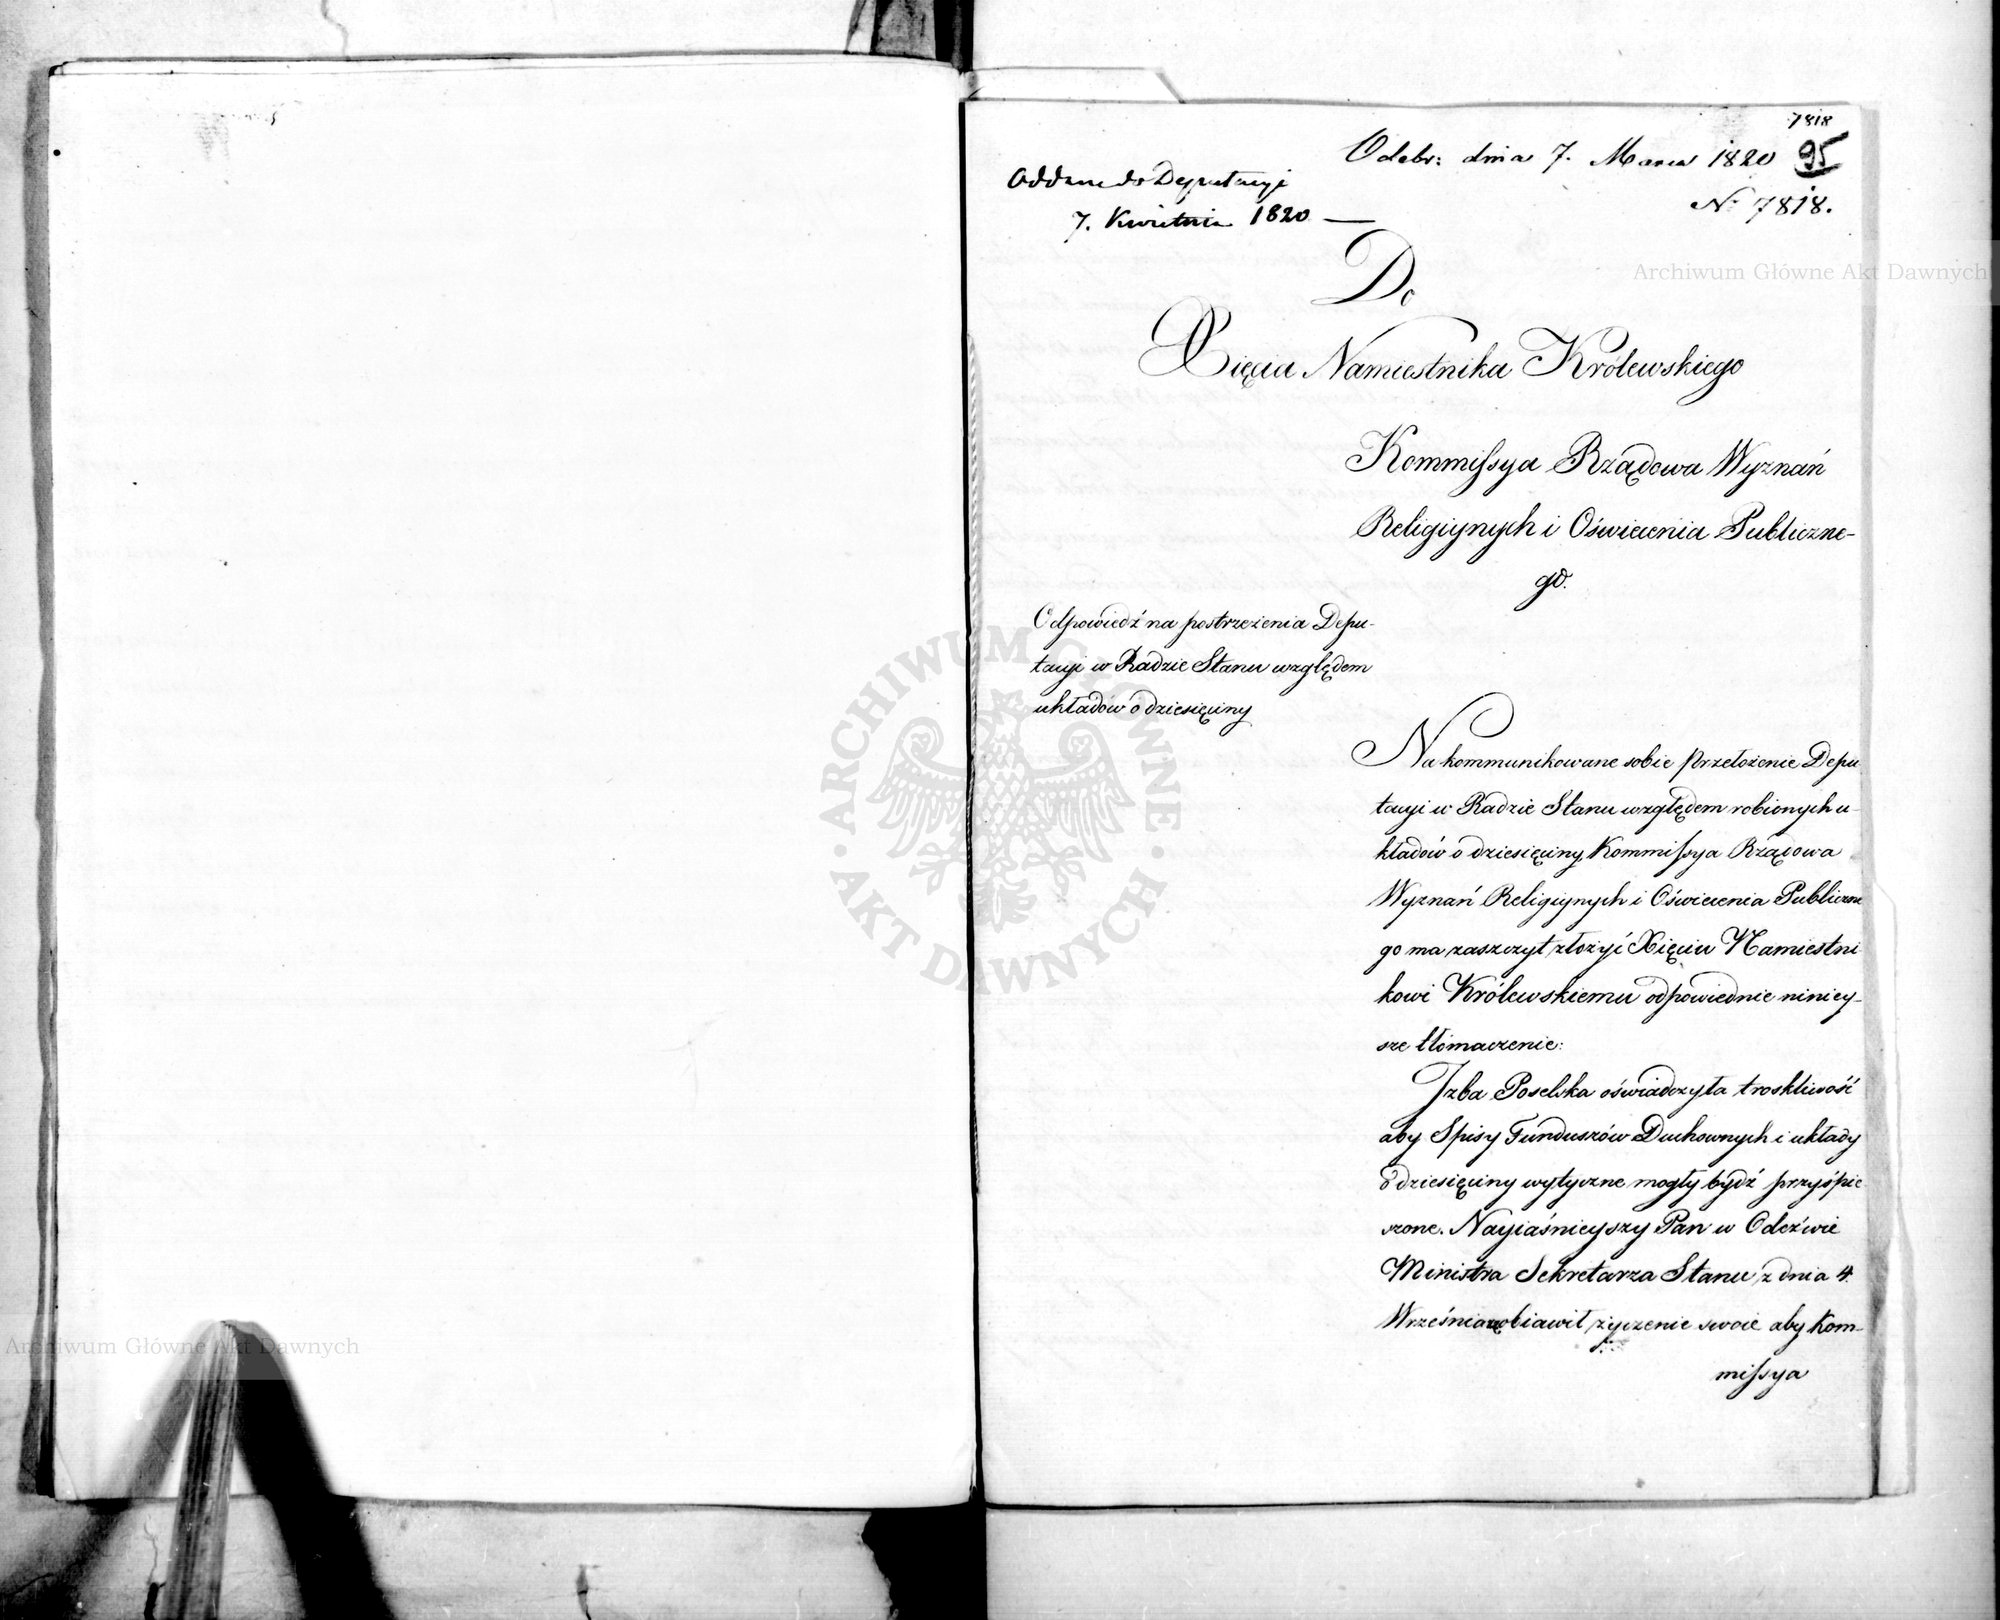 7818
Odebr: dnia 7. Marca 1820 95
Oddane do Deputacyi
N: 7818.
7. Kwietnia 1820 —
Do
Xięcia Namiestnika Królewskiego
Kommissya Rządowa Wyznań
Religiynych i Oświecenia Publiczne-
go.
Odpowiedź na postrzeżenia Depu-
tacyi w Radzie Stanu względem
układów o dziesięciny
Na kommunikowane sobie przełożenie Depu
tacyi w Radzie Stanu względem robionych u-
kładów o dziesięciny, Kommissya Rządowa
Wyznań Religiynych i Oświecenia Publiczne
go ma zaszczyt złożyć Xięciu Namiestni
kowi Królewskiemu odpowiednie niniey-
sze tłómaczenie:
Izba Poselska oświadczyła troskliwość
aby Spisy Funduszów Duchownych i układy
o dziesięciny wytyczne mogły bydź przyśpie
szone. Nayiaśnieyszy Pan w Odezwie
Ministra Sekretarza Stanu z dnia 4.
Września obiawił życzenie swoie aby Kom-
missya
Archiwum Główne Akt Dawnych
Archiwum Główne Akt Dawnych
ARCHIWUM GŁÓWNE
AKT DAWNYCH